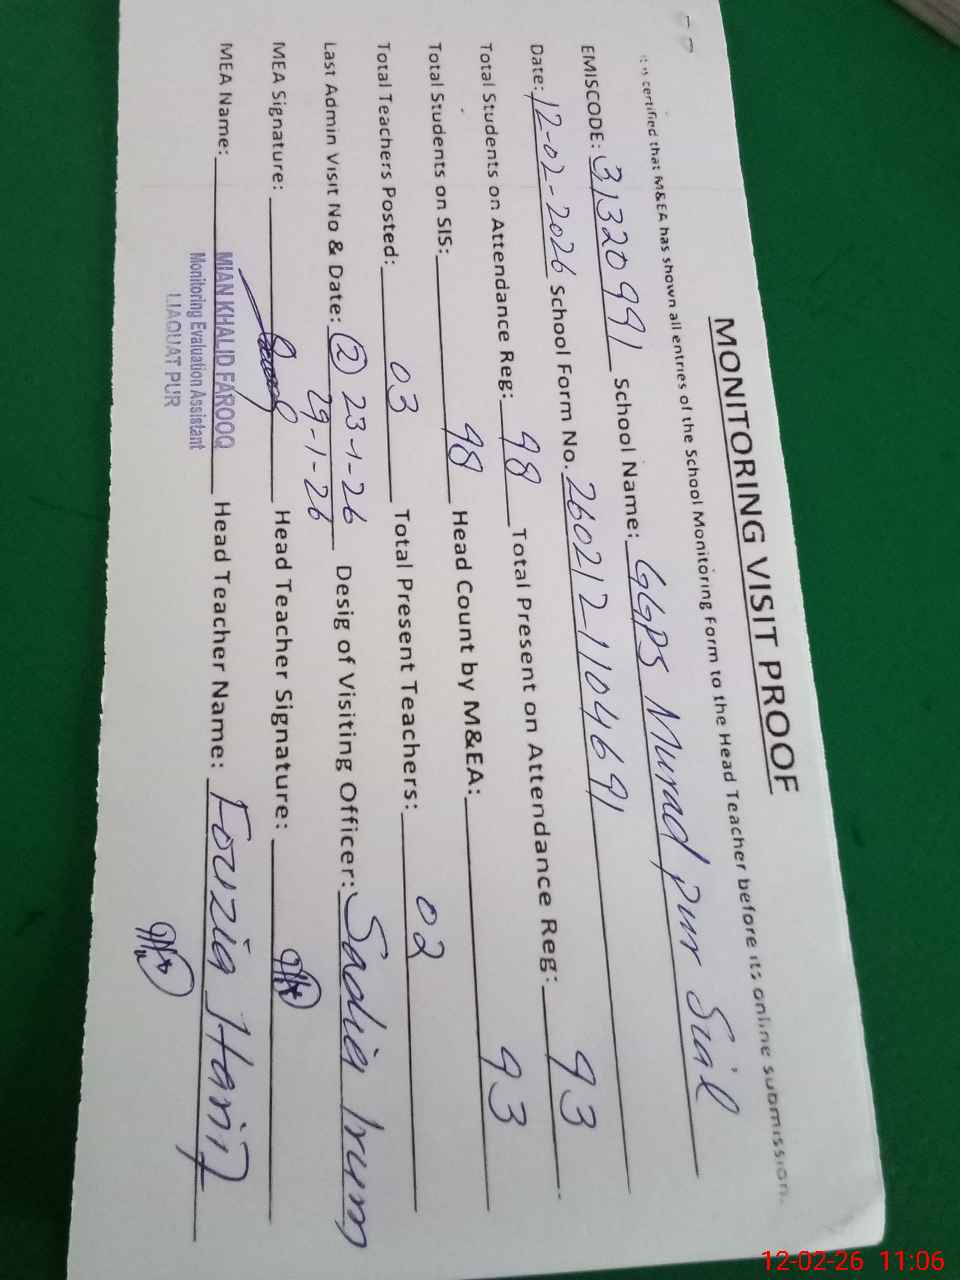 MONITORING VISIT PROOF
It is certified that M&EA has shown all entries of the School Monitoring Form to the Head Teacher before its online submission.
EMISCODE: 31320991 School Name: GGPS Murad pur Sial
Date: 12-02-2026 School Form No. 260212-1104691
Total Students on Attendance Reg: 98 Total Present on Attendance Reg: 93
Total Students on SIS: 98 Head Count by M&EA: 93
Total Teachers Posted: 03 Total Present Teachers: 02
Last Admin Visit No & Date: 2 23-1-26 Desig of Visiting Officer: Sadia Irum
29-1-26
MEA Signature: Head Teacher Signature:
MEA Name: MIAN KHALID FAROOQ Head Teacher Name: Fouzia Hanif
Monitoring Evaluation Assistant
LIAQUAT PUR
12-02-26 11:06